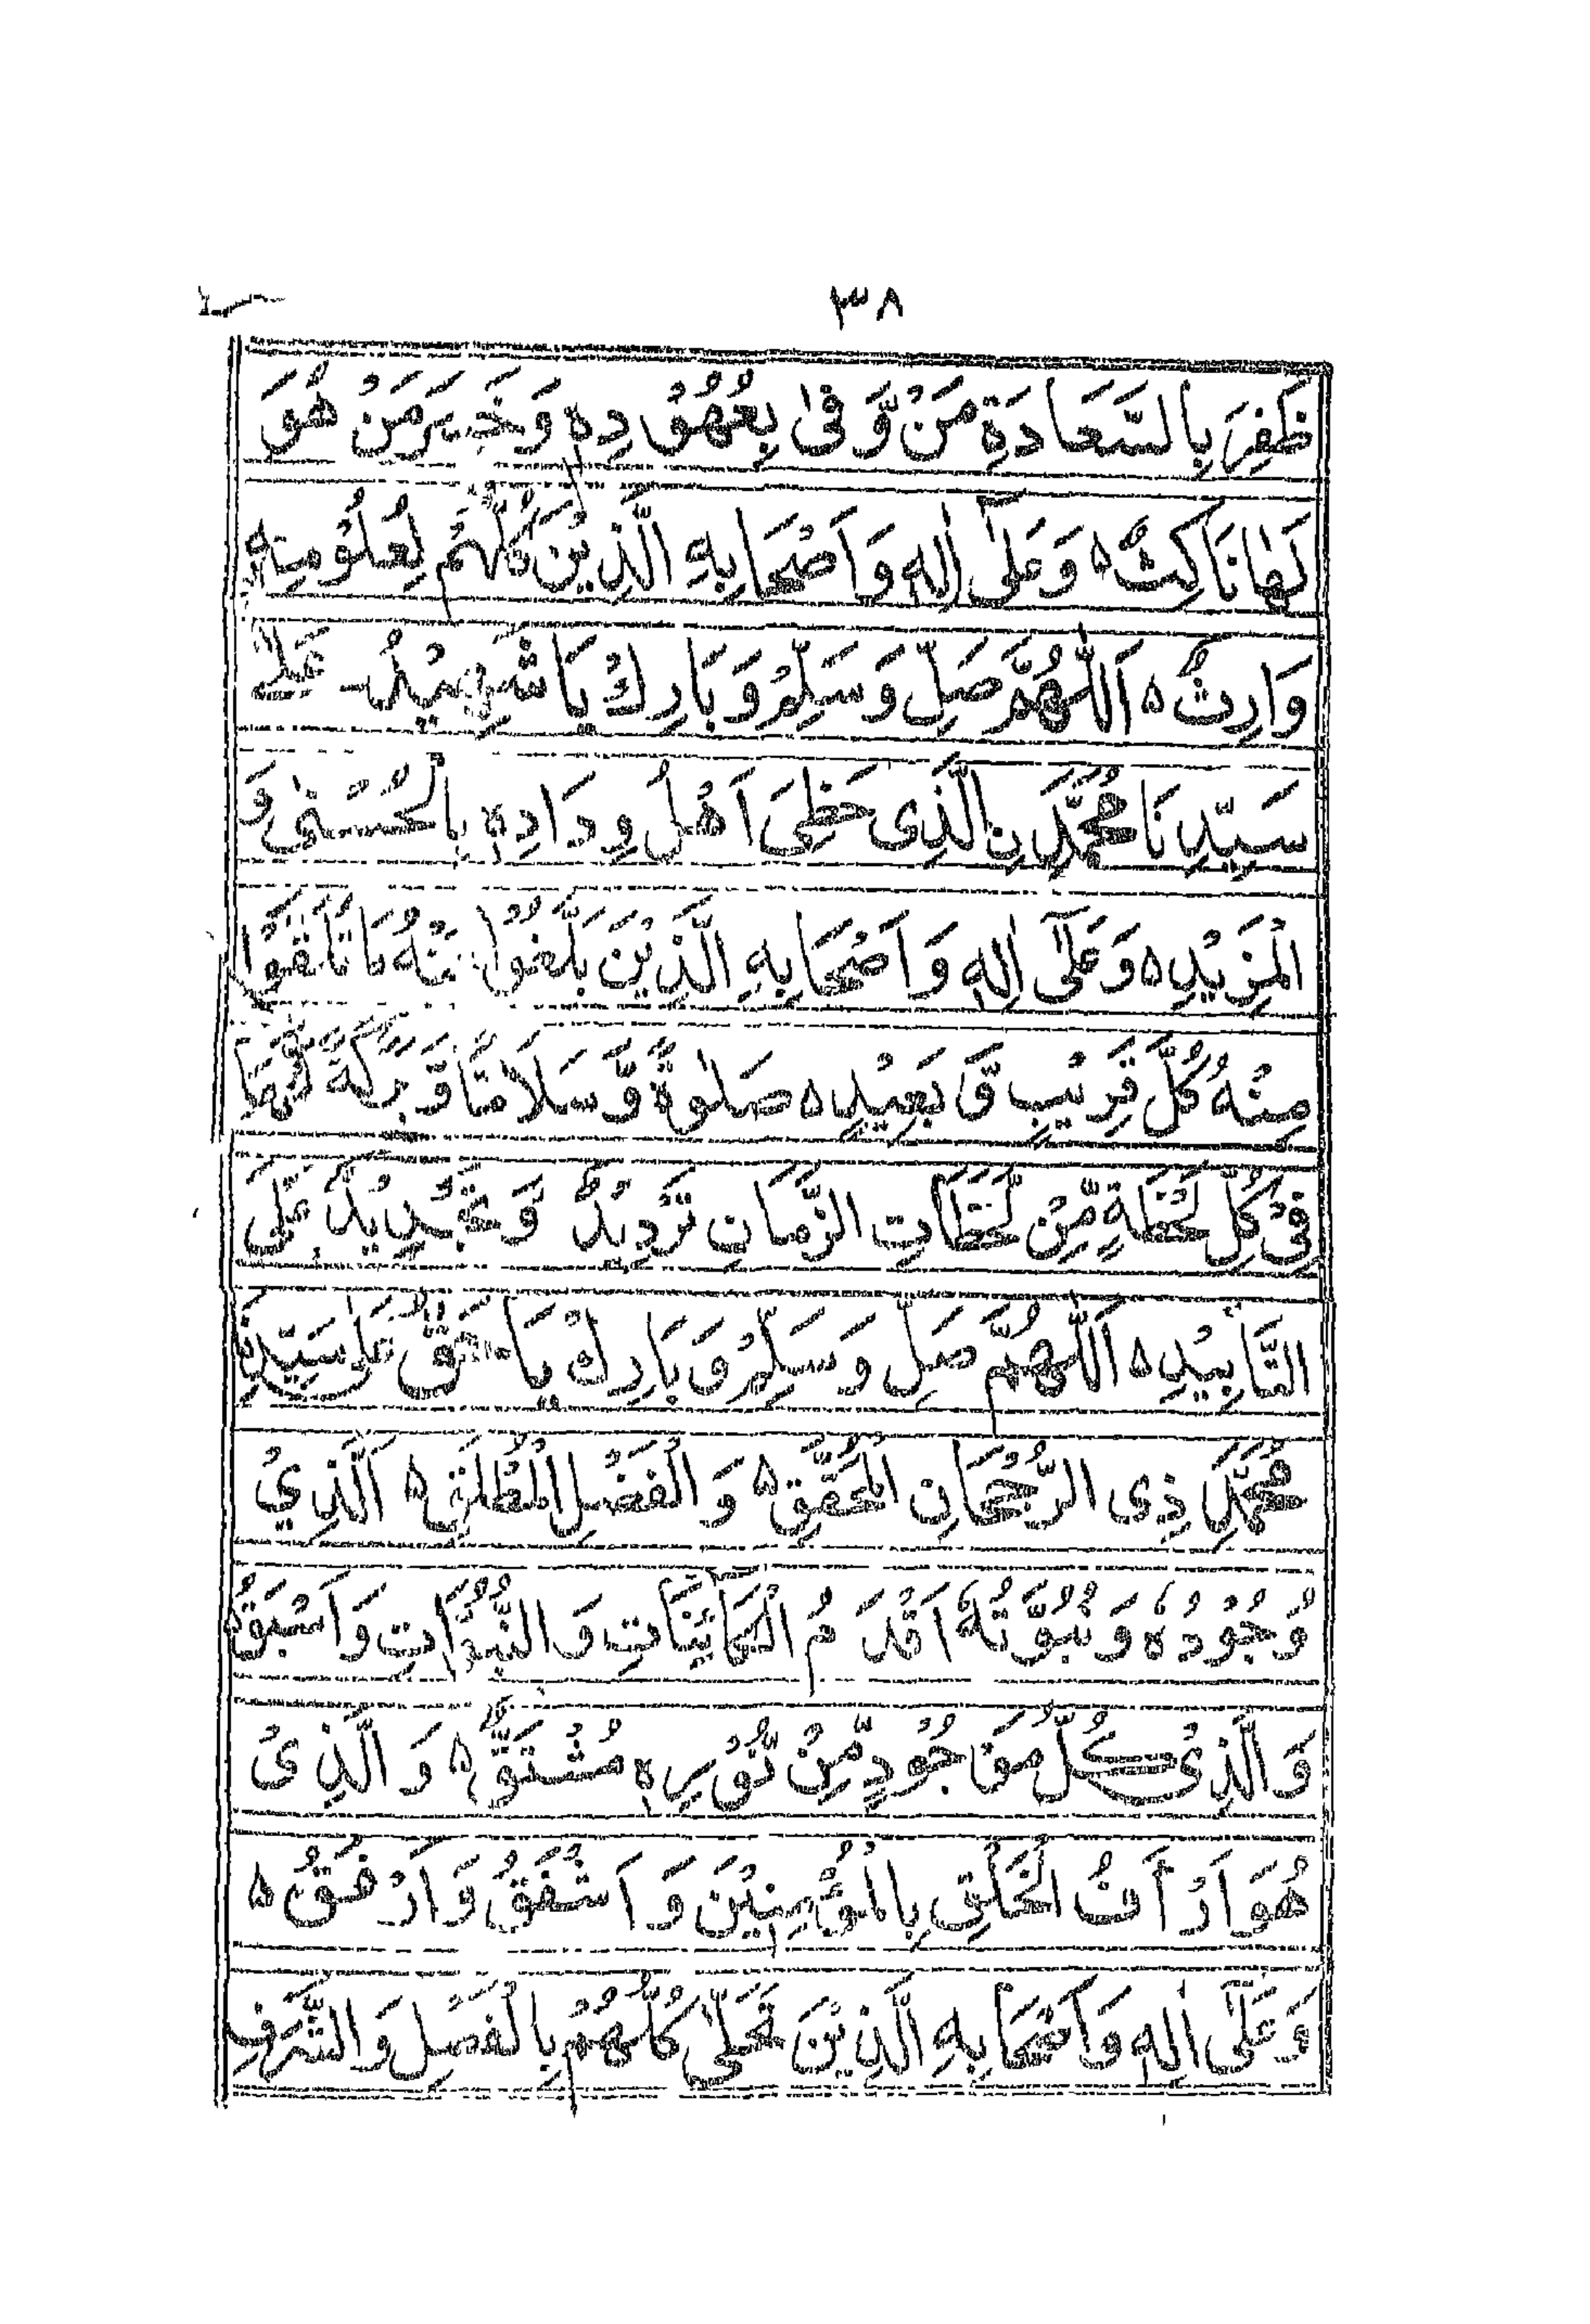 ٣٨
ظَفِرَ بِالسَّعَادَةِ مَنْ وَّفىٰ بِعُهُوْدِهٖ وَخَسِرَ مَنْ هُوَ
لَهَا نَاكِثٌ ۵ وَعَلىٰٓ اٰلِهٖ وَاَصْحَابِهِ الَّذِيْنَ كُلُّهُمْ لِعُلُوْمِهٖ
وَارِثٌ ۵ اَللّٰهُمَّ صَلِّ وَسَلِّمْ وَبَارِكْ يَا شَهِيْدُ عَلىٰ
سَيِّدِنَا مُحَمَّدِ نِ الَّذِى حَظِىَ اَهْلُ وِدَادِهٖ بِالْحُسْنىٰ وَ
الْمَزِيْدِ ۵ وَعَلىٰٓ اٰلِهٖ وَاَصْحَابِهِ الَّذِيْنَ بَلَّغُوْا عَنْهُ مَا تَلَقَّوْا
مِنْهُ كُلَّ قَرِيْبٍ وَّ بَعِيْدٍ ۵ صَلوٰةً وَّسَلَامًا وَّ بَرَكَةً لَّهُمَا
فِىْ كُلِّ لَحْظَةٍ مِّنْ لَحَظَاتِ الزَّمَانِ تَرْدِيْدٌ وَّ تَجْدِيْدٌ عَلَى
التَّابِيْدِ ۵ اَللّٰهُمَّ صَلِّ وَسَلِّمْ وَبَارِكْ يَا حَقُّ عَلىٰ سَيِّدِنَا
مُحَمَّدٍ ذِى الرُّجْحَانِ الْمُحَقَّقِ ۵ وَالْفَضْلِ الْمُطْلَقِ ۵ اَلَّذِىْ
وُجُوْدُهٗ وَنُبُوَّتُهٗٓ اَقْدَمُ الْكَآئِنَاتِ وَالنُّبُوَّاتِ وَاَسْبَقُ
وَالَّذِىْ كُلُّ مَوْجُوْدٍ مِّنْ نُّوْرِهٖ مُشْتَقٌّ ۵ وَالَّذِىْ
هُوَ اَرْأَفُ الْخَلْقِ بِالْمُؤْمِنِيْنَ وَاَشْفَقُ وَاَرْفَقُ ۵
وَعَلىٰٓ اٰلِهٖ وَاَصْحَابِهِ الَّذِيْنَ تَحَلّىٰ كُلُّهُمْ بِالْفَضْلِ وَالشَّرَفِ